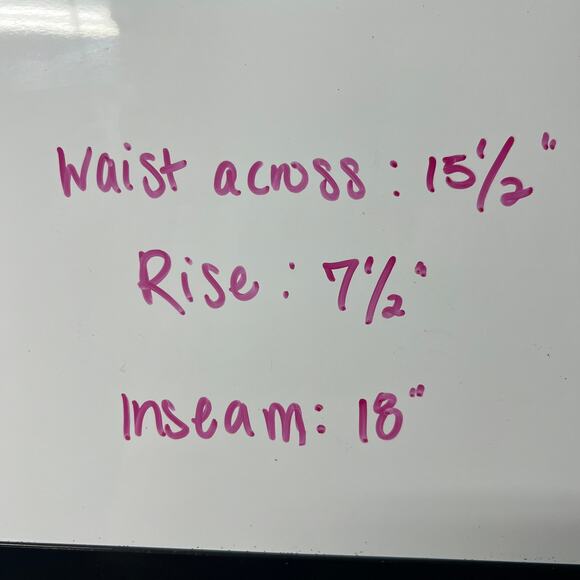 Waist across: 15 1/2"
Rise: 7 1/2"
Inseam: 18"